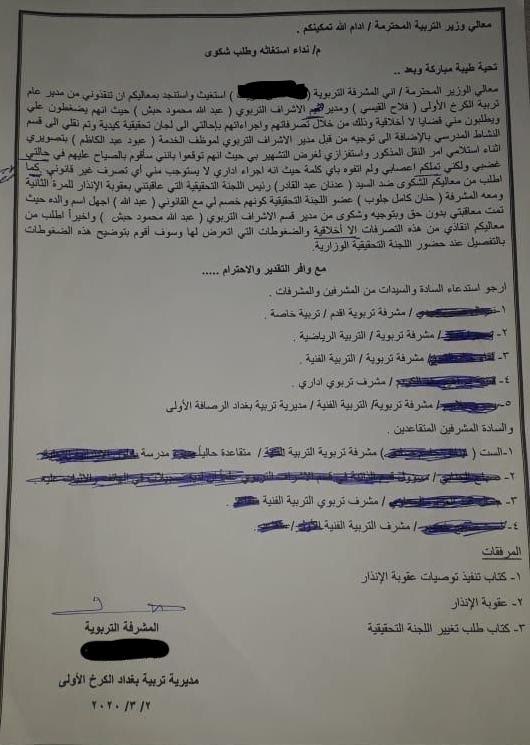 معالي وزير التربية المحترمة / ادام الله تمكينكم .
م/ نداء استغاثه وطلب شكوى
تحية طيبة مباركة وبعد ..
معالي الوزير المحترمة / اني المشرفة التربوية ( ) استغيث واستنجد بمعاليكم ان تنقذوني من مدير عام
تربية الكرخ الأولى ( فلاح القيسي ) ومدير قسم الاشراف التربوي ( عبد الله محمود حبش ) حيث انهم يضغطون علي
ويطلبون مني قضايا لا أخلاقية وذلك من خلال تصرفاتهم واجراءاتهم بإحالتي الى لجان تحقيقية كيدية وتم نقلي الى قسم
النشاط المدرسي بالإضافة الى توجيه من قبل مدير الاشراف التربوي لموظف الخدمة ( عبود عبد الكاظم ) بتصويري
اثناء استلامي امر النقل المذكور واستفزازي لغرض التشهير بي حيث انهم توقعوا بانني سأقوم بالصياح عليهم في حالتي
غضبي ولكني تملكم اعصابي ولم اتفوه باي كلمة حيث انه اجراء اداري لا يستوجب مني أي تصرف غير قانوني كما
اطلب من معاليكم الشكوى ضد السيد ( عدنان عبد القادر) رئيس اللجنة التحقيقية التي عاقبتني بعقوبة الإنذار للمرة الثانية
ومعه المشرفة ( حنان كامل جلوب ) عضو اللجنة التحقيقية كونهم خصم لي مع القانوني ( عبد الله ) اجهل اسم والده حيث
تمت معاقبتي بدون حق وبتوجيه وشكوى من مدير قسم الاشراف التربوي ( عبد الله محمود حبش ) واخيراً اطلب من
معاليكم انقاذي من هذه التصرفات الا أخلاقية والضغوطات التي اتعرض لها وسوف أقوم بتوضيح هذه الضغوطات
بالتفصيل عند حضور اللجنة التحقيقية الوزارية.
مع وافر التقدير والاحترام .....
ارجو استدعاء السادة والسيدات من المشرفين والمشرفات .
١- / مشرفة تربوية اقدم / تربية خاصة .
٢- / مشرفة تربوية / التربية الرياضية .
٣- / مشرفة تربوية / التربية الفنية .
٤- / مشرف تربوي اداري .
٥- / مشرفة تربوية/ التربية الفنية / مديرية تربية بغداد الرصافة الأولى
والسادة المشرفين المتقاعدين .
١-الست ( ) مشرفة تربوية التربية / متقاعدة حالياً مدرسة
٢-
٣- / مشرف تربوي التربية الفنية
٤- / مشرف التربية الفنية
المرفقات
١- كتاب تنفيذ توصيات عقوبة الإنذار
٢- عقوبة الإنذار
٣- كتاب طلب تغيير اللجنة التحقيقية
المشرفة التربوية
مديرية تربية بغداد الكرخ الأولى
٢ / ٣ / ٢٠٢٠